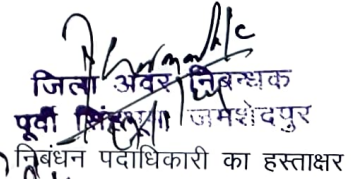 जिला अवर निबन्धक
पूर्वी सिंहभूम जमशेदपुर
निबंधन पदाधिकारी का हस्ताक्षर